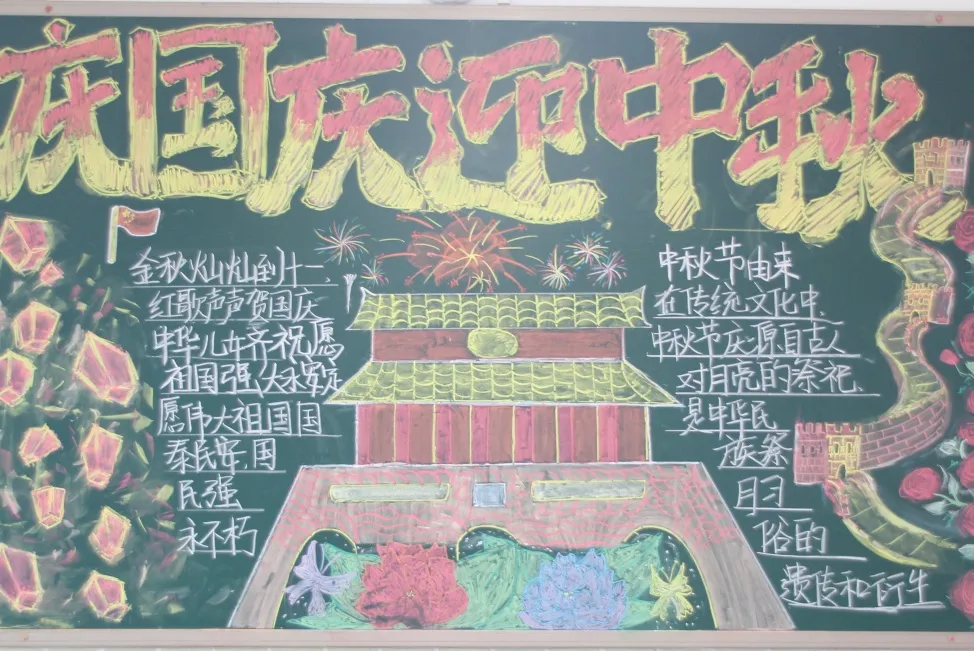 庆国庆迎中秋
金秋灿灿到十一,
红歌声声贺国庆
中华儿女齐祝愿
祖国强大永安定
愿伟大祖国国
泰民安,国
民强
永不朽
中秋节由来
在传统文化中,
中秋节庆源自古人
对月亮的祭祀,
是中华民
族祭
月习
俗的
遗传和衍生